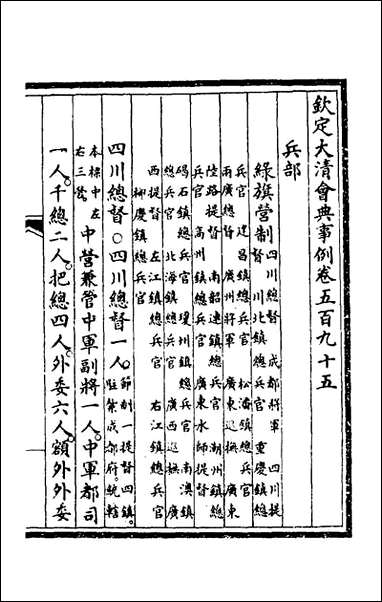 欽定大清會典事例卷五百九十五
兵部
綠旗營制
四川總督 成都將軍 四川提
督 川北鎮總兵官 重慶鎮總
兵官 建昌鎮總兵官 松潘鎮總兵官
兩廣總督 廣州將軍 廣東巡撫 廣東
陸路提督 南韶連鎮總兵官 潮州鎮總
兵官 高州鎮總兵官 廣東水師提督
碣石鎮總兵官 瓊州鎮總兵官 南澳鎮
總兵官 北海鎮總兵官 廣西巡撫 廣
西提督 左江鎮總兵官 右江鎮總兵官
柳慶鎮總兵官
四川總督○四川總督一人。
節制一提督四鎮。
駐紮成都府。統轄
本標中左
右三營
中營兼管中軍副將一人。中軍都司
一人。千總二人。把總四人。外委六人。額外外委